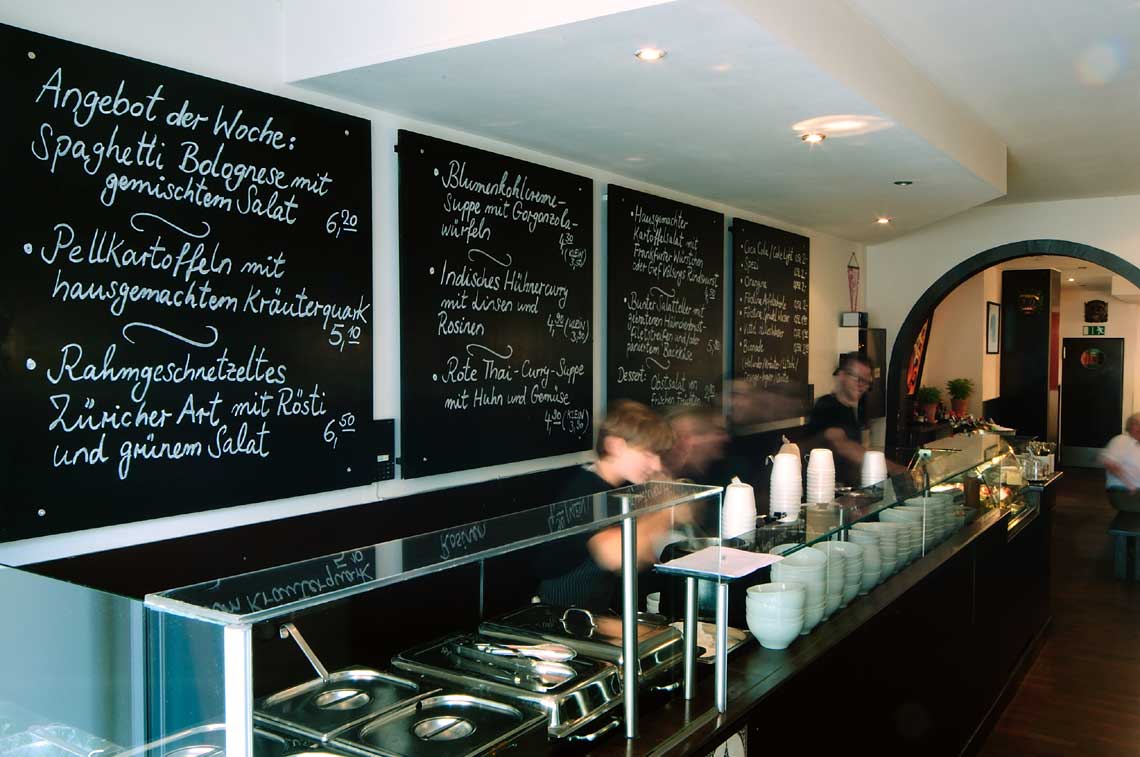 Angebot der Woche:
Spaghetti Bolognese mit
gemischtem Salat 6,20
• Pellkartoffeln mit
hausgemachtem Kräuterquark
5,10
• Rahmgeschnetzeltes
Züricher Art mit Rösti
und grünem Salat 6,50
• Blumenkohlcreme-
Suppe mit Gorgonzola-
würfeln 4,90 (KLEIN
3,90
• Indisches Hühnercurry
mit Linsen und
Rosinen 4,90 (KLEIN
3,90
• Rote Thai-Curry-Suppe
mit Huhn und Gemüse
4,90 (KLEIN
3,90
Hausgemachter
Kartoffelsalat mit
Frankfurter Würstchen
oder Geflügel Rindswurst
4,90
• Bunter Salatteller mit
gebratenen Hähnchenbrust-
Filetstreifen und/oder
paniertem Backkäse 5,
Dessert: Obstsalat von
frischen Früchten
• Coca Cola / Cola Light
• Spezi
• Orangina
• Bionade